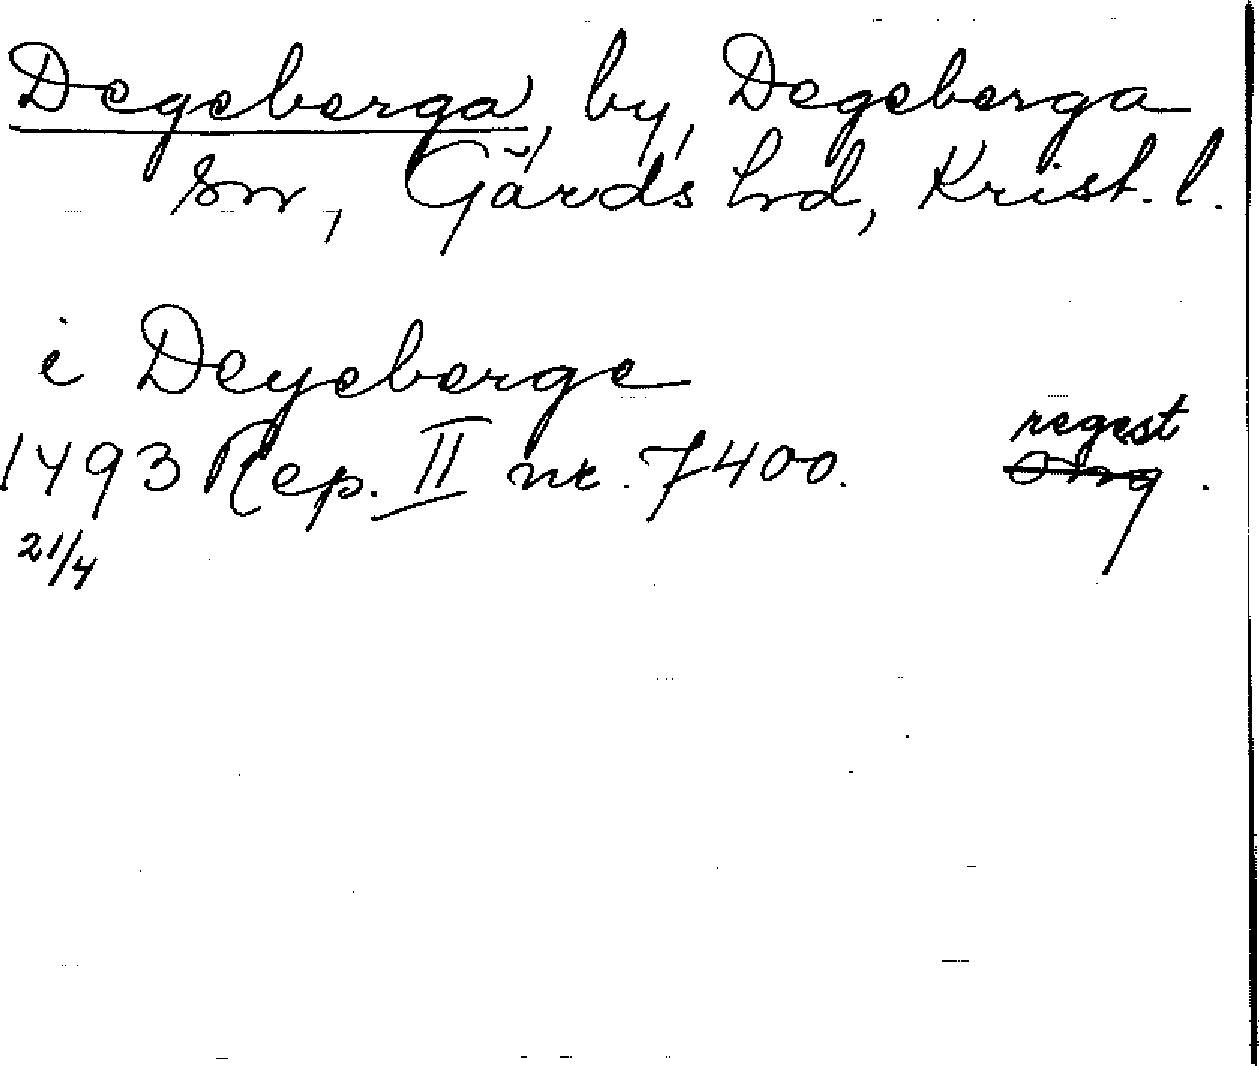 Degeberga, by, Degeberga
sn, Gärds hd, Krist. l.
i Deyeberge
regest
1493 Rep. II nr. 7400. orig.
21/4